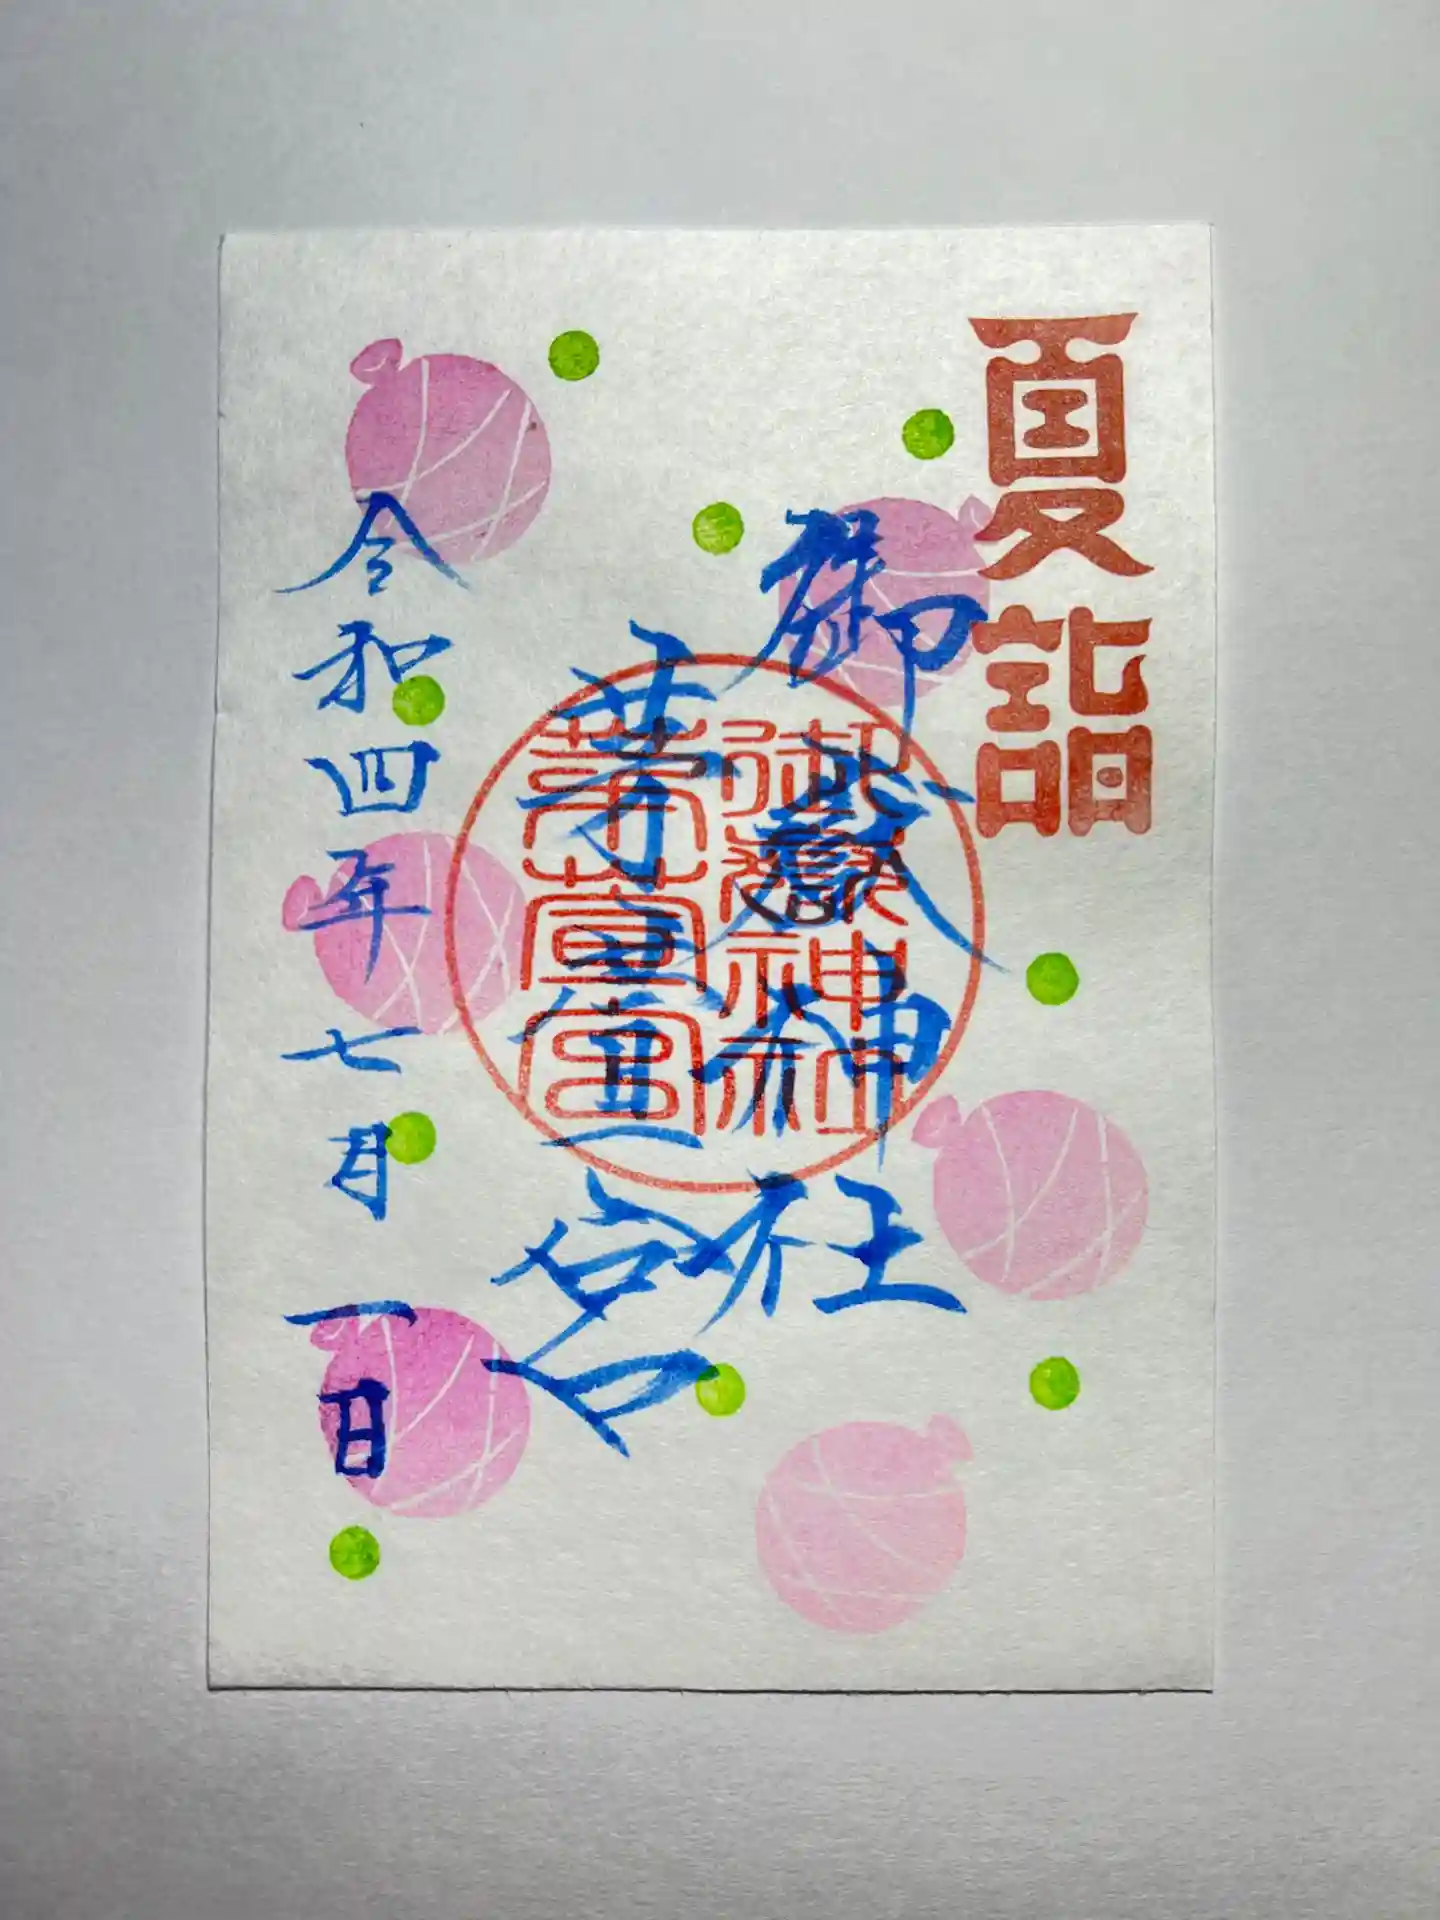 夏詣
御嶽神社
茅萱宮
御嶽神社
茅萱宮
令和四年七月一日